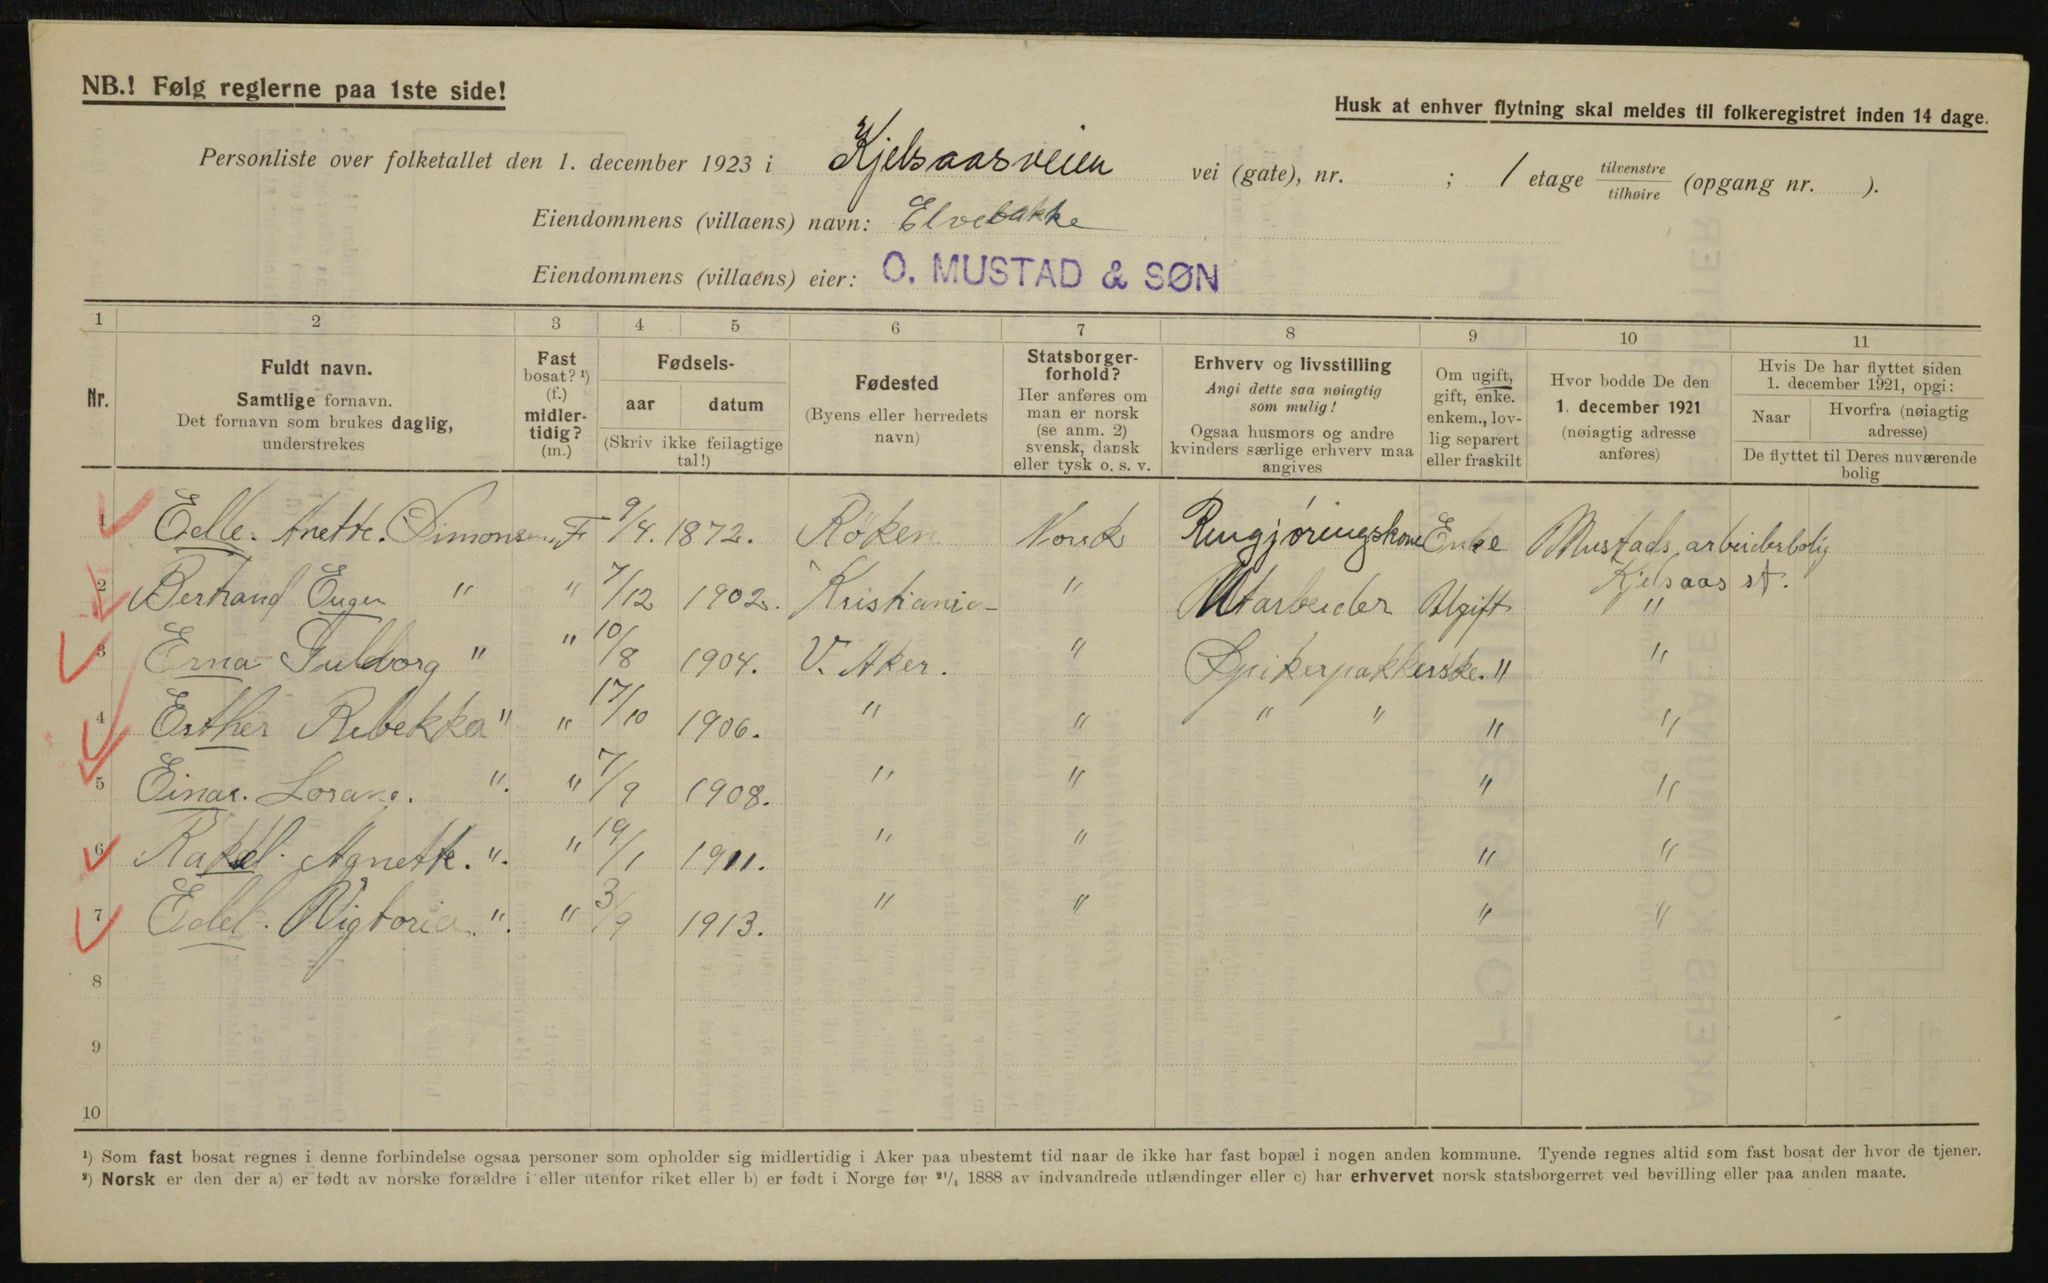 NB.! Følg reglerne paa 1ste side!
Husk at enhver flytning skal meldes til folkeregistret inden 14 dage.
Personliste over folketallet den 1. december 1923 i Kjelsaasveien vei (gate), nr. ; 1 etage tilvenstre tilhøire (opgang nr. ).
Eiendommens (villaens) navn: Elvebakke
Eiendommens (villaens) eier: O. MUSTAD & SØN
1 2 3 4 5 6 7 8 9 10 11
Nr.
Fuldt navn.
Samtlige fornavn.
Det fornavn som brukes daglig,
understrekes
Fast
bosat? ¹)
(f.)
midler-
tidig?
(m.)
Fødsels-
aar datum
(Skriv ikke feilagtige
tal!)
Fødested
(Byens eller herredets
navn)
Statsborger-
forhold?
Her anføres om
man er norsk
(se anm. 2)
svensk, dansk
eller tysk o. s. v.
Erhverv og livsstilling
Angi dette saa nøiagtig
som mulig!
Ogsaa husmors og andre
kvinders særlige erhverv maa
angives
Om ugift,
gift, enke.
enkem., lov-
lig separert
eller fraskilt
Hvor bodde De den
1. december 1921
(nøiagtig adresse
anføres)
Hvis De har flyttet siden
1. december 1921, opgi:
Naar Hvorfra (nøiagtig
adresse)
De flyttet til Deres nuværende
bolig
1 Edle. Anette. Simonsen F 9/4. 1872. Röken Norsk Rengjøringskone Enke Mustads arbeiderbolig
Kjelsaas st.
2 Bertrand Eugen " " 7/12 1902. Kristiania " Utarbeider Ugift "
3 Erna Gulborg " " 10/8 1904. V. Aker. " Spikerpakkerske. " "
4 Esther Rebekka " " 17/10 1906. " " " " " "
5 Einar. " " 7/9 1908. " " " "
6 Rakel. Agnette. " " 19/1 1911. " " " "
7 Edel. Vigtoria. " " 3/9 1913. " " " "
8
9
10
¹) Som fast bosat regnes i denne forbindelse ogsaa personer som opholder sig midlertidig i Aker paa ubestemt tid naar de ikke har fast bopæl i nogen anden kommune. Tyende regnes altid som fast bosat der hvor de tjener.
²) Norsk er den der a) er født av norske forældre i eller utenfor riket eller b) er født i Norge før ²¹/₄ 1888 av indvandrede utlændinger eller c) har erhvervet norsk statsborgerret ved bevilling eller paa anden maate.